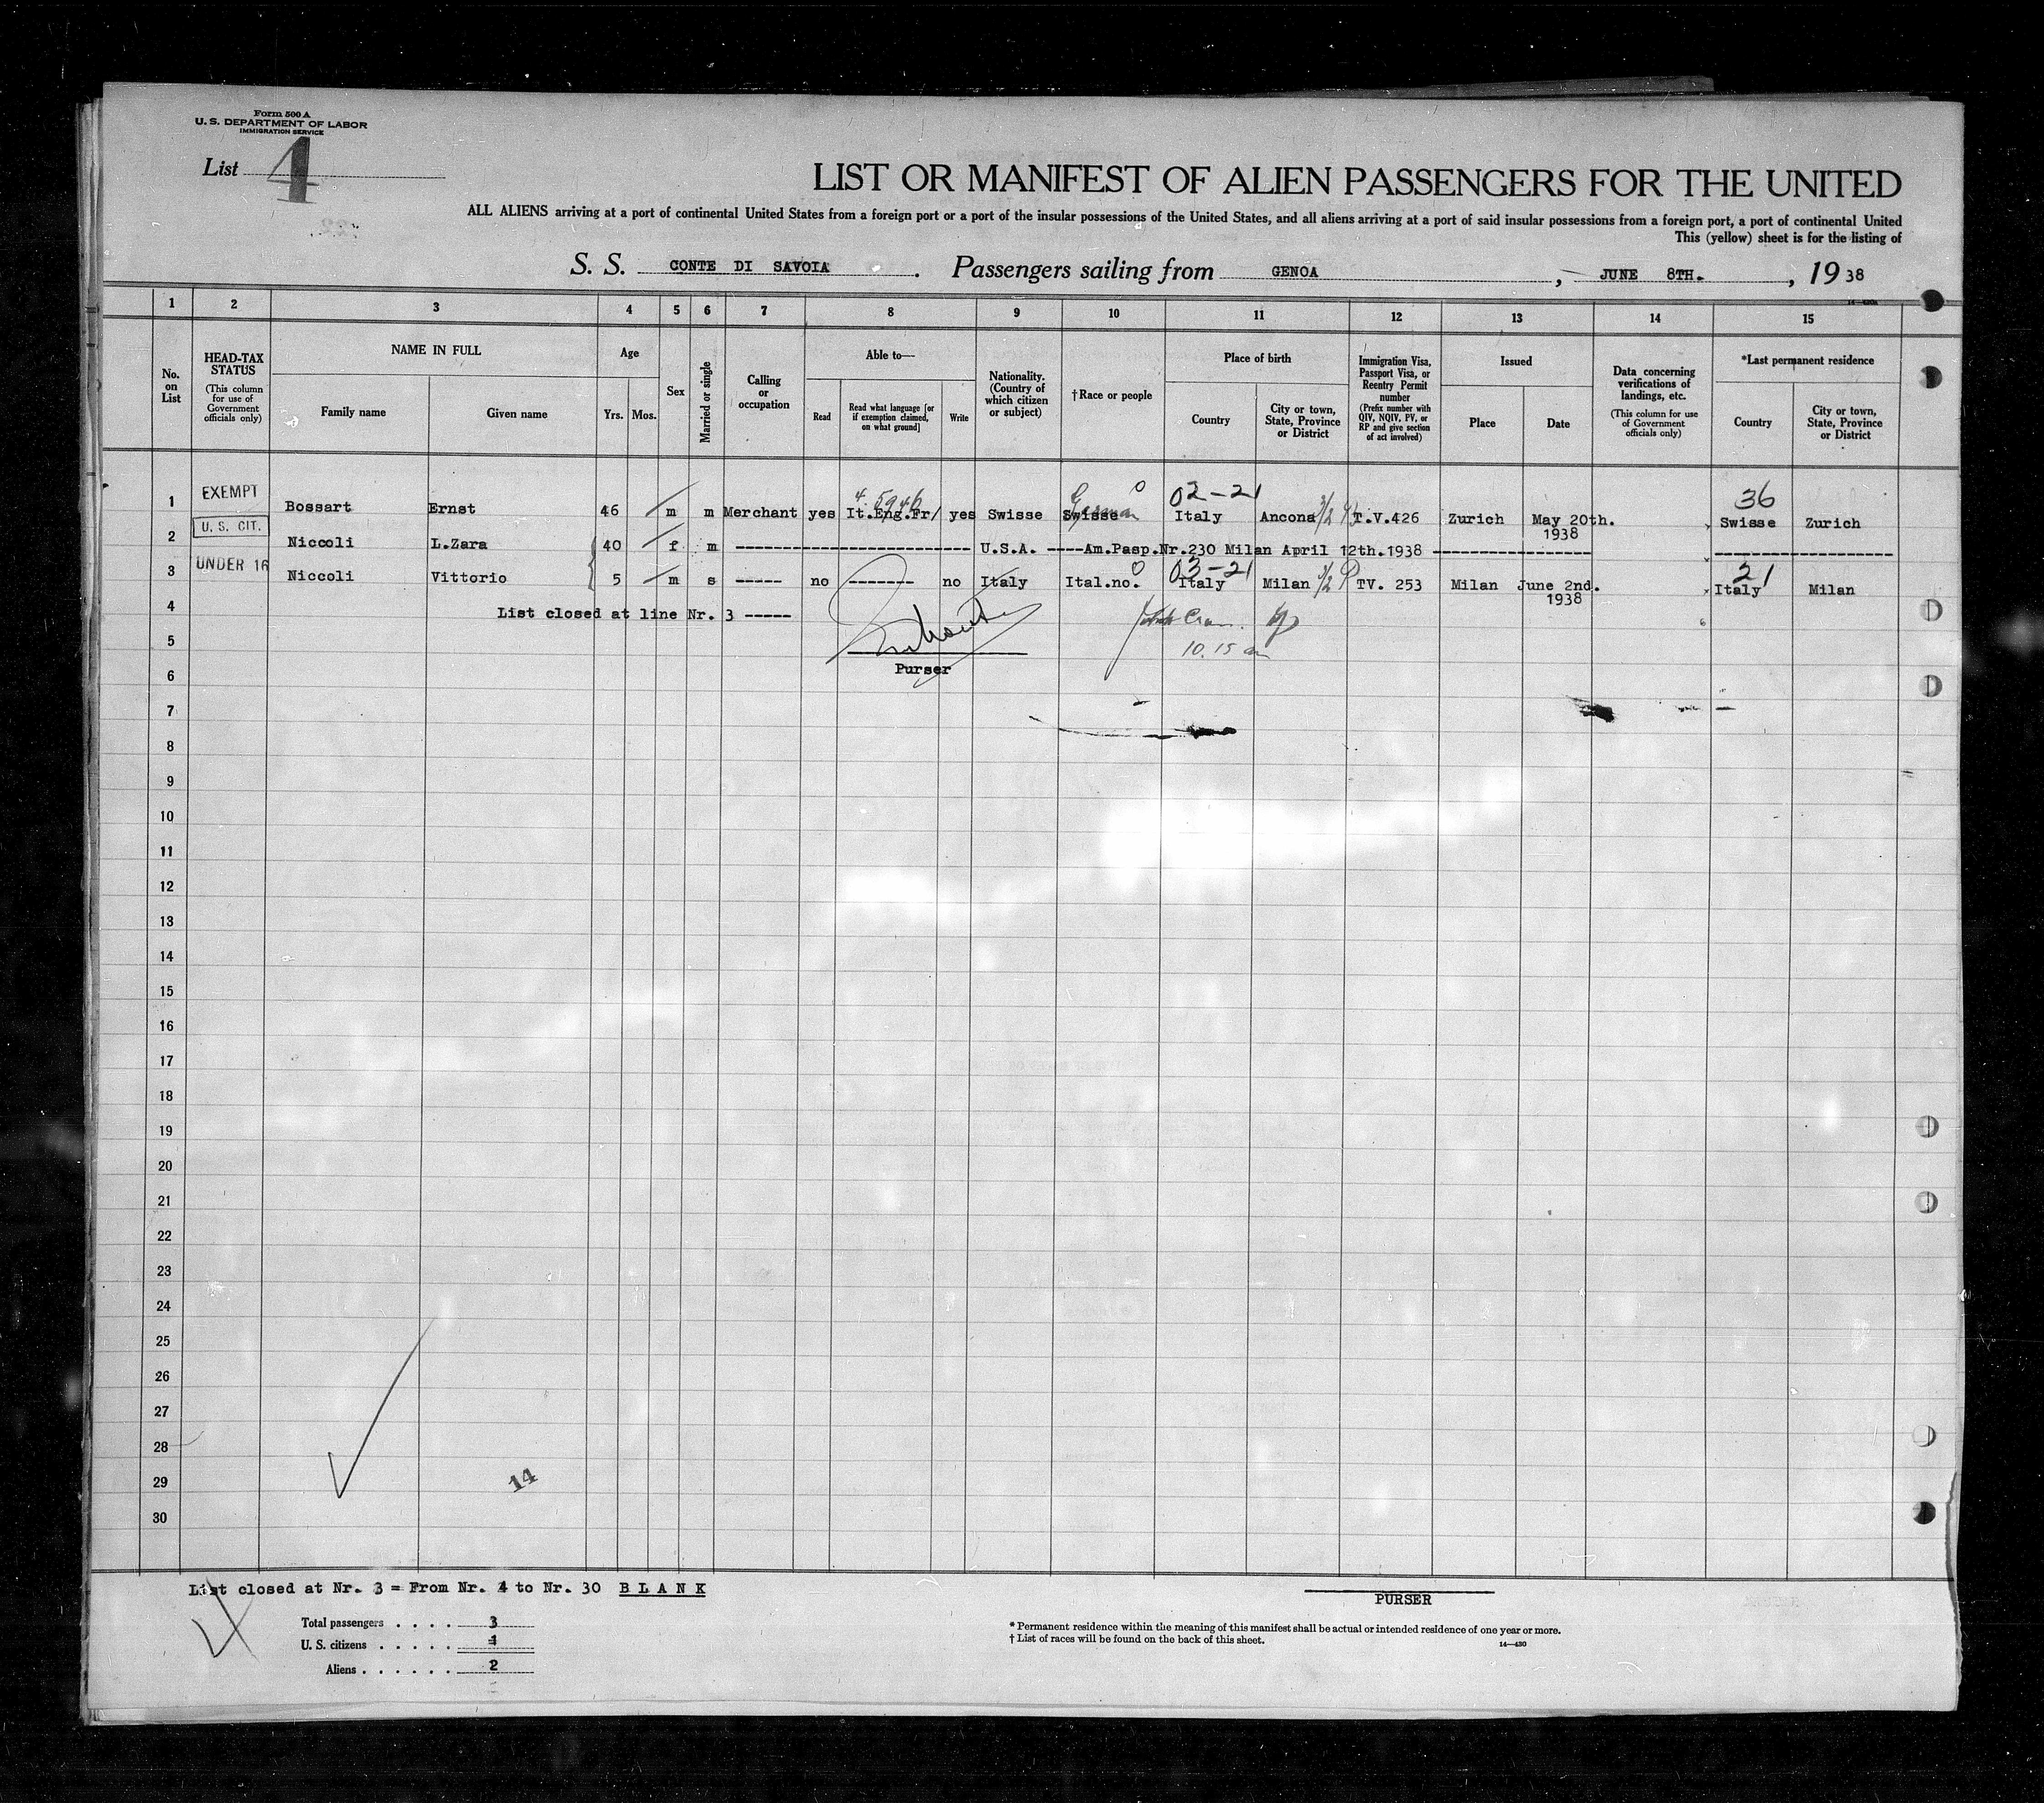 Form 500 A
U. S. DEPARTMENT OF LABOR
IMMIGRATION SERVICE
List 4
LIST OR MANIFEST OF ALIEN PASSENGERS FOR THE UNITED
ALL ALIENS arriving at a port of continental United States from a foreign port or a port of the insular possessions of the United States, and all aliens arriving at a port of said insular possessions from a foreign port, a port of continental United
This (yellow) sheet is for the listing of
S. S. CONTE DI SAVOIA . Passengers sailing from GENOA , JUNE 8TH. , 19 38
1 2 3 4 5 6 7 8 9 10 11 12 13 14 15
No. on List
HEAD-TAX STATUS
(This column for use of Government officials only)
NAME IN FULL
Family name
Given name
Age
Yrs. Mos.
Sex
Married or single
Calling or occupation
Able to—
Read
Read what language [or if exemption claimed, on what ground]
Write
Nationality. (Country of which citizen or subject)
†Race or people
Place of birth
Country
City or town, State, Province or District
Immigration Visa, Passport Visa, or Reentry Permit number
(Prefix number with QIV, NQIV, PV, or RP and give section of act involved)
Issued
Place
Date
Data concerning verifications of landings, etc.
(This column for use of Government officials only)
*Last permanent residence
Country
City or town, State, Province or District
EXEMPT 02-21 36
1 Bossart Ernst 46 m m Merchant yes It.Eng.Fr/ yes Swisse Swisse German Italy Ancona 3/2 T.V.426 Zurich May 20th. 1938 Swisse Zurich
U. S. CIT.
2 Niccoli L.Zara 40 f m ----- U.S.A. ----Am.Pasp.Nr.230 Milan April 12th.1938 -----
UNDER 16 03-21 21
3 Niccoli Vittorio 5 m s ----- no ------- no Italy Ital.no. Italy Milan 3/2 TV. 253 Milan June 2nd. 1938 Italy Milan
4 List closed at line Nr. 3 -----
5 10.15 am
6 Purser
7
8
9
10
11
12
13
14
15
16
17
18
19
20
21
22
23
24
25
26
27
28
29 14
30
List closed at Nr. 3 = From Nr. 4 to Nr. 30 BLANK
PURSER
Total passengers . . . . 3
U. S. citizens . . . . . 1
Aliens . . . . . . 2
* Permanent residence within the meaning of this manifest shall be actual or intended residence of one year or more.
† List of races will be found on the back of this sheet.
14—430